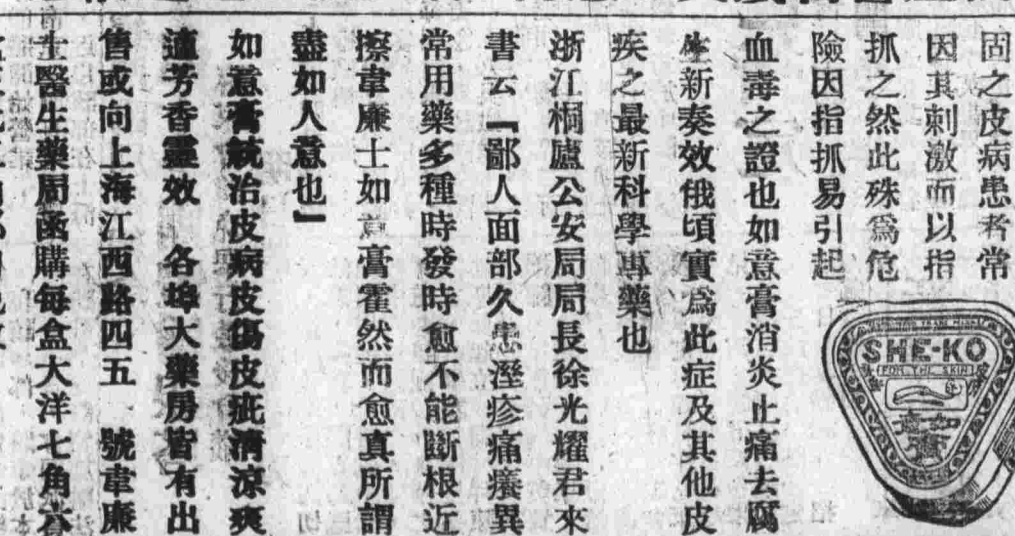 固之皮病患者常
因其刺激而以指
抓之然此殊爲危
險因指抓易引起
血毒之證也如意膏消炎止痛去腐
生新奏效俄頃實爲此症及其他皮
疾之最新科學專藥也
浙江桐廬公安局局長徐光耀君來
書云『鄙人面部久患溼疹痛癢異
常用藥多種時發時愈不能斷根近
擦韋廉士如意膏霍然而愈真所謂
盡如人意也』
如意膏統治皮病皮傷皮疵清涼爽
適芳香靈效 各埠大藥房皆有出
售或向上海江西路四五 號韋廉
士醫生藥局函購每盒大洋七角六
SHE-KO
FOR THE SKIN
如意膏